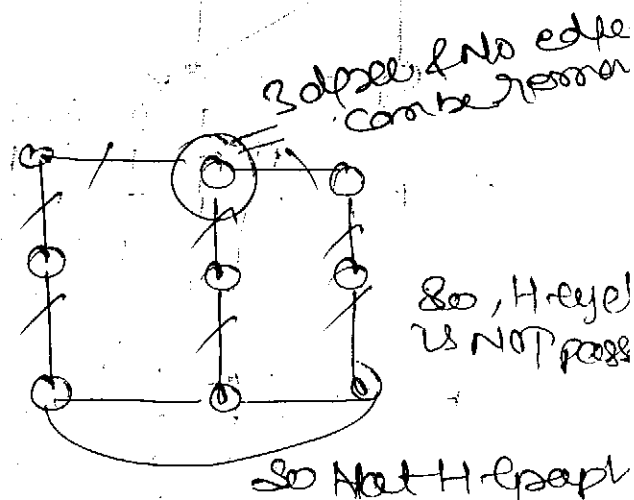 3 degree & No edge
can be remov
So, H-cycl
is NOT poss
So Not H-graph